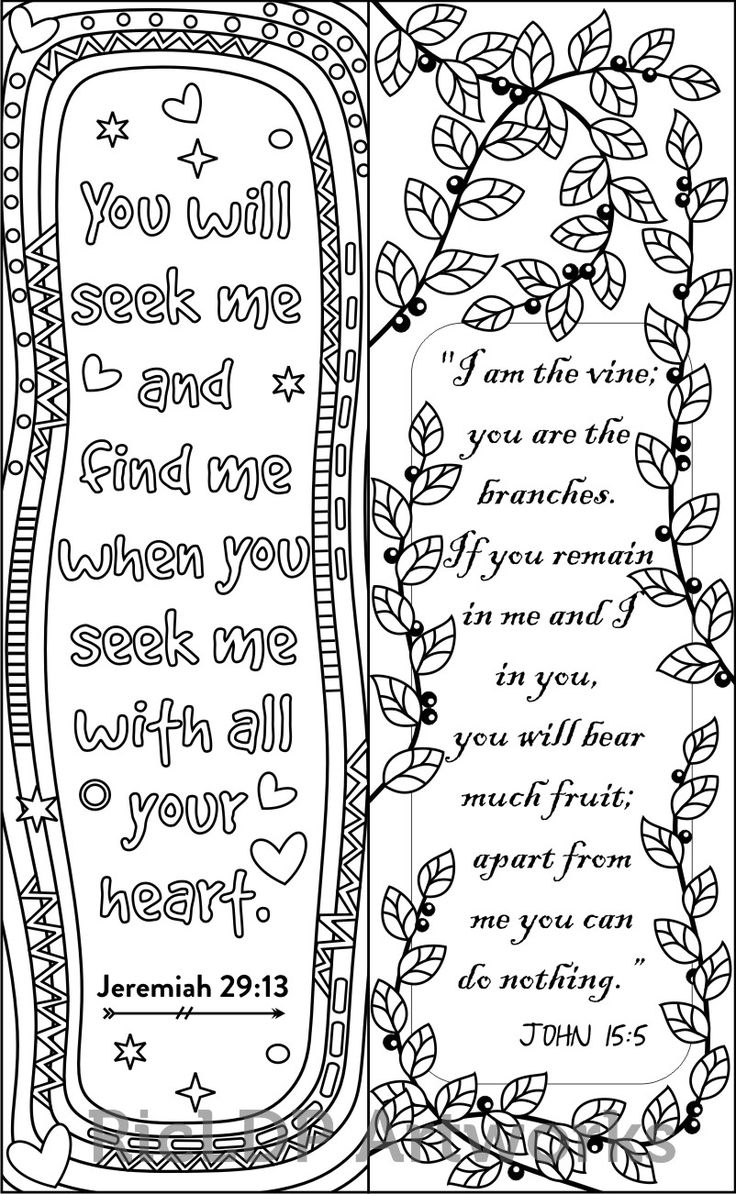 You will
seek me
and
find me
when you
seek me
with all
your
heart.
Jeremiah 29:13
"I am the vine;
you are the
branches.
If you remain
in me and I
in you,
you will bear
much fruit;
apart from
me you can
do nothing."
JOHN 15:5
RicLDP Artworks